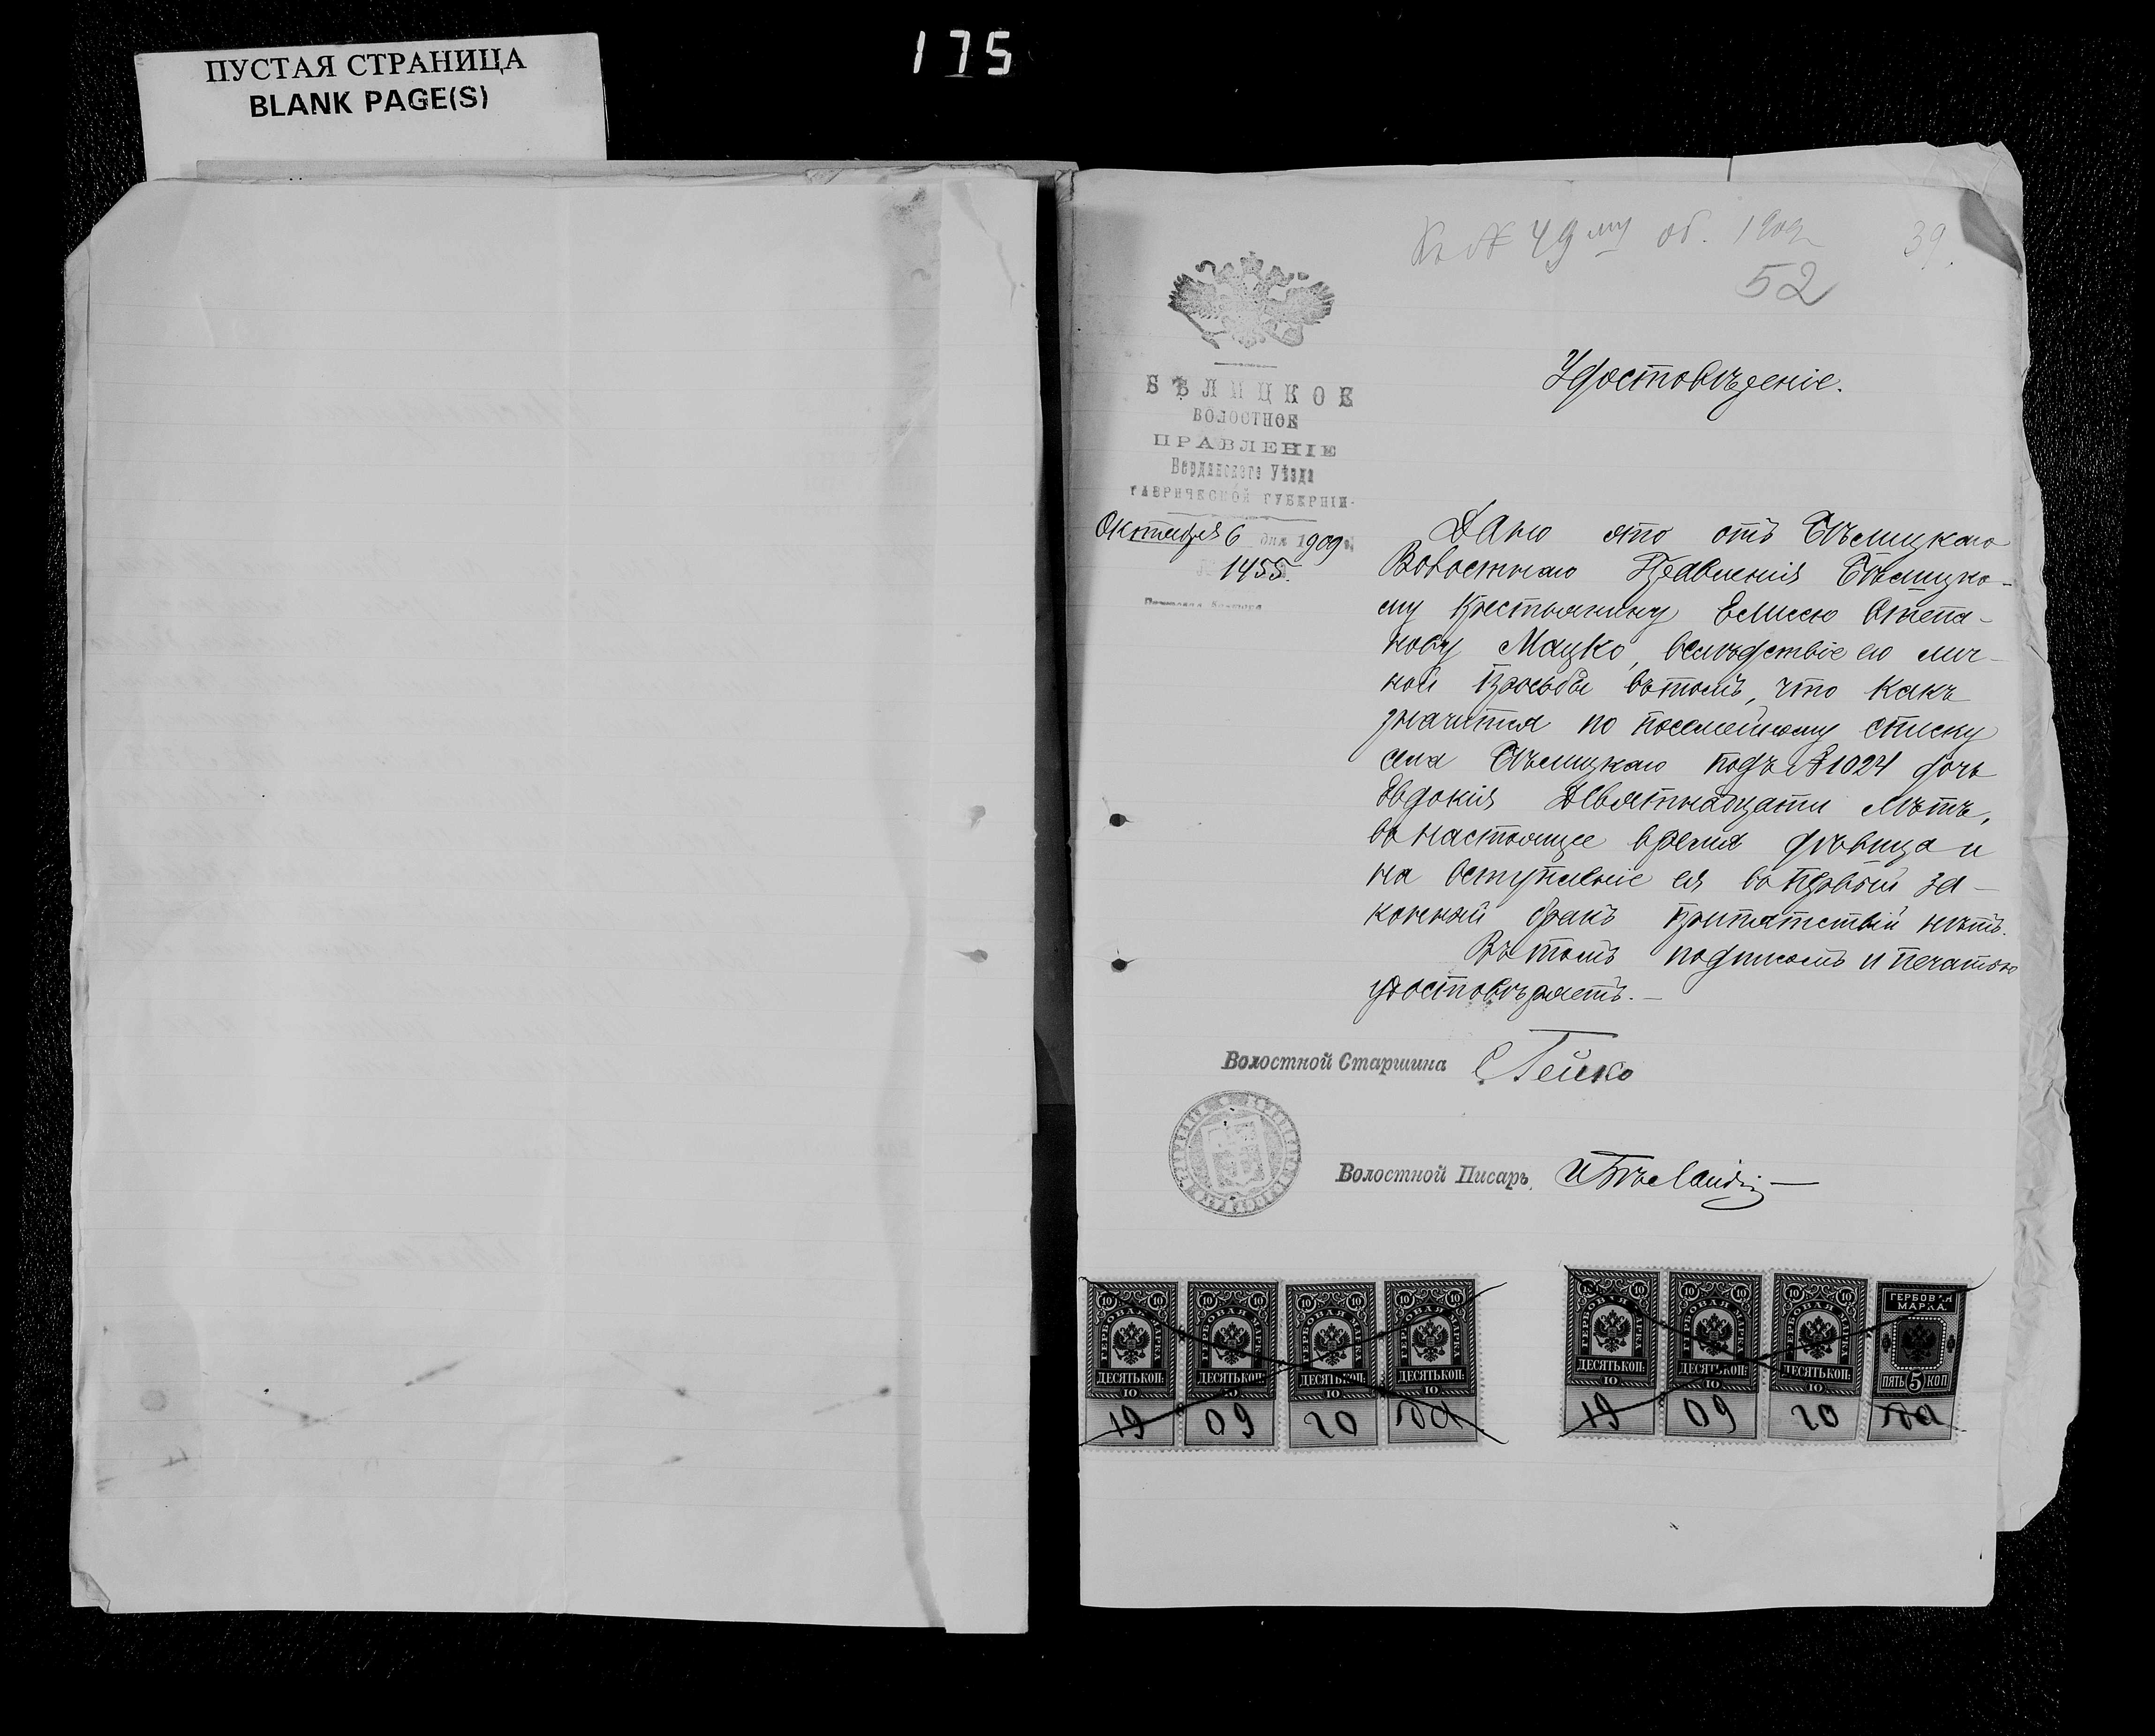 ПУСТАЯ СТРАНИЦА
BLANK PAGE(S)
175
Къ № 49му об. 1909
39.
52
БѢЛИЦКОЕ
ВОЛОСТНОЕ
ПРАВЛЕНІЕ
Бердянскаго Уѣзда
ТАВРИЧЕСКОЙ ГУБЕРНІИ.
Октября 6 дня 1909 г.
№ 1455.
Удостовѣреніе.
Дано это отъ Бѣлицкаго
Волостнаго Правленія Бѣлицко-
му крестьянину Елисею Степа-
нову Мацко, вслѣдствіе его лич-
ной просьбы вътомъ, что какъ
значится по посемейному списку
села Бѣлицкаго подъ №1024 дочь
Евдокія Девятнадцати лѣтъ,
въ настоящее время дѣвица и
на вступленіе ея въ первый за-
конный бракъ припятствій нѣтъ.
Въ томъ подписомъ и печатью
удостовѣряетъ.—
Волостной Старшина СГейко
Волостной Писарь
ГЕРБОВАЯ МАРКА ДЕСЯТЬ КОП. 10
ГЕРБОВАЯ МАРКА ДЕСЯТЬ КОП. 10
ГЕРБОВАЯ МАРКА ДЕСЯТЬ КОП. 10
ГЕРБОВАЯ МАРКА ДЕСЯТЬ КОП. 10
19 09 го да
ГЕРБОВАЯ МАРКА ДЕСЯТЬ КОП. 10
ГЕРБОВАЯ МАРКА ДЕСЯТЬ КОП. 10
ГЕРБОВАЯ МАРКА ДЕСЯТЬ КОП. 10
ГЕРБОВАЯ МАРКА. ПЯТЬ 5 КОП
19 09 го да